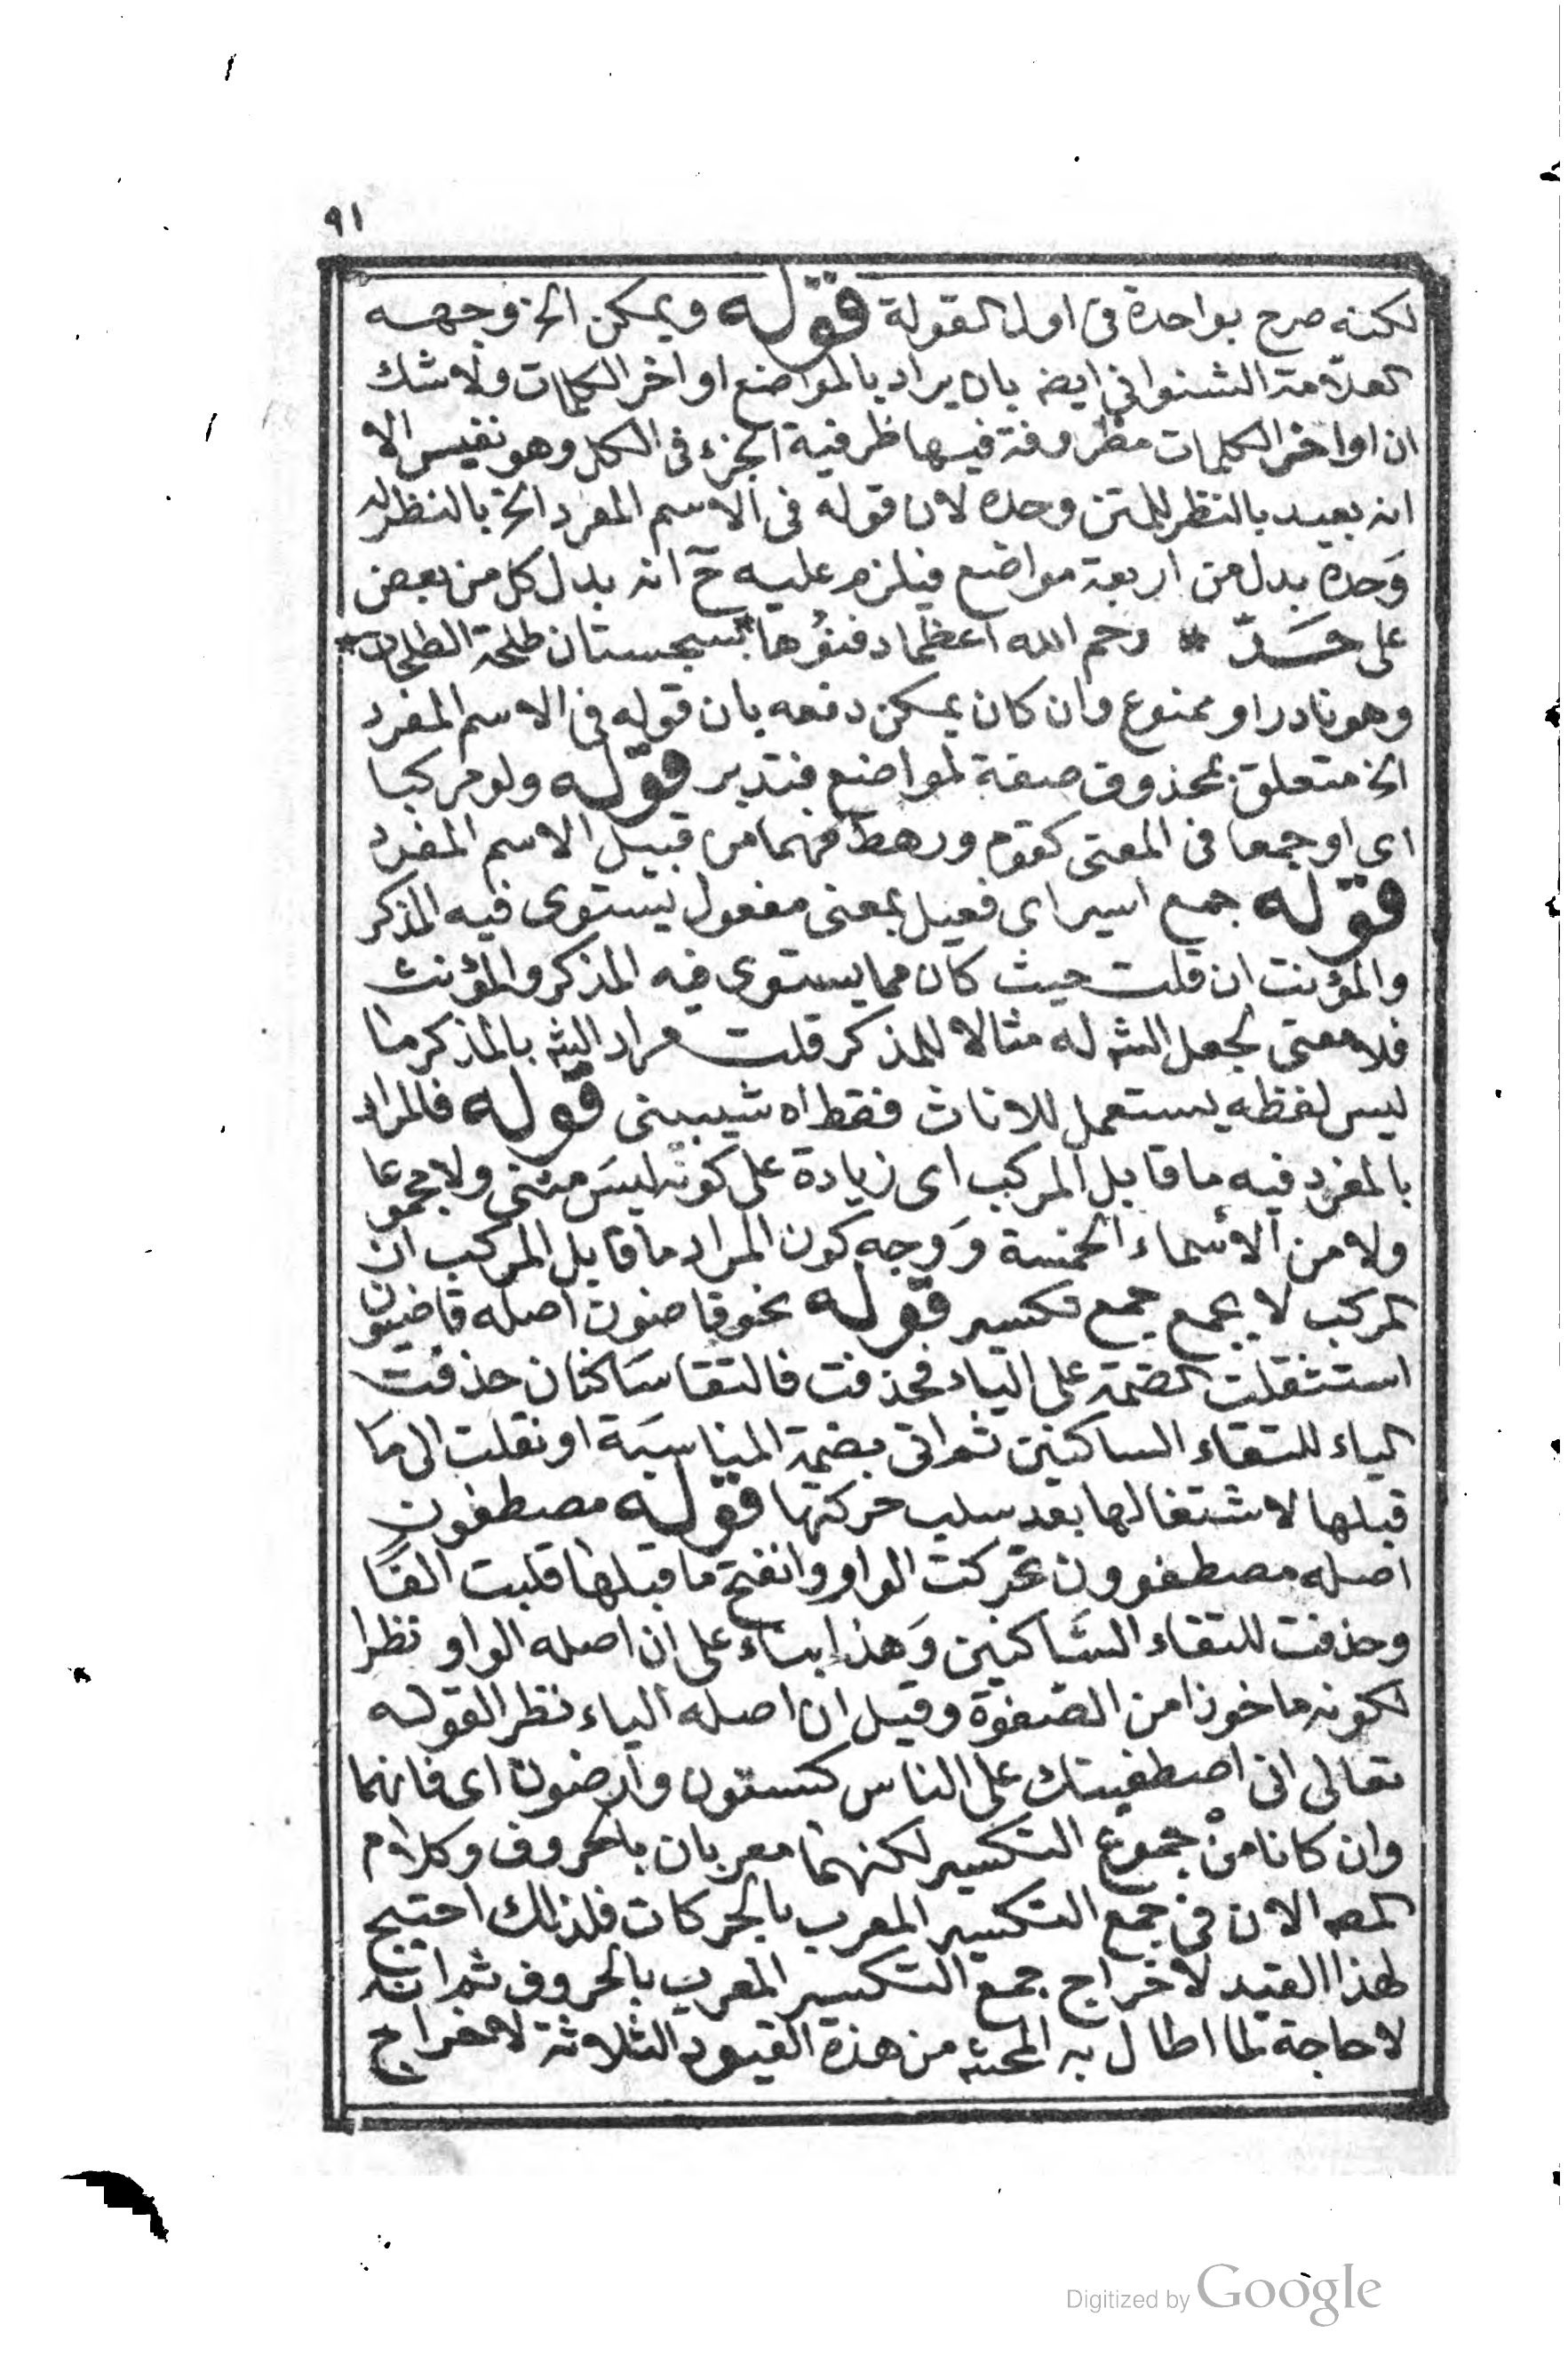 ٩١
لكنه صرح بواحدة فى اول القولة قوله ويمكن الخ وجهه
العلامة الشنوانى ايضه بان يراد بالمواضع اواخر الكلمات ولاشك
ان اواخر الكلمات مظروفة فيها ظرفية الجزء فى الكل وهو نفيس الا
انه بعيد بالنظر للمتن وحده لان قوله فى الاسم المفرد الخ بالنظر له
وَحده بدل من اربعة مواضع فيلزم عليه ح انه بدل كل من بعض
على حَدّ * رحم الله اعظما دفنوُها * بسجستان طلحة الطلحات *
وهو نادر او ممنوع وان كان يمكن دفعه بان قوله فى الاسم المفرد
الخ متعلق بمحذوف صفة لمواضع فتدبر قوله ولو مركبا
اى او جمعا فى المعنى كقوم ورهط فهما من قبيل الاسم المفرد
قوله جمع اسير اى فعيل بمعنى مفعول يستوى فيه المذكر
والمؤنت ان قلت حيث كان مما يستوى فيه المذكر والمؤنث
فلا معنى لجعل الشه له مثالا للمذكر قلت مراد الشه بالمذكر ما
ليس لفظه يستعمل للاناث فقط اه شيبينى قوله فالمراد
بالمفرد فيه ما قابل المركب اى زيادة على كونه ليسَ مثنى ولا مجموعا
ولا من الأسماء الخمسة وَوجه كون المراد ما قابل المركب ان
المركب لا يجمع جمع تكسير قوله نحو قاضون اصله قاضيون
استثقلت الضمة على الياء فحذفت فالتقا سَاكنان حذفت
الياء للتقاء الساكنين ثم اتى بضمة المناسبَة او نقلت الى مَا
قبلها لاشتغالها بعد سلب حركتها قوله مصطفون
اصله مصطفوون تحركت الواو وانفتح ما قبلها قلبت الفًا
وحذفت للتقاء السَّاكنين وَهذا بناء على ان اصله الواو نظرا
لكونه ماخوذا من الصفوة وقيل ان اصله الياء نظرا لقوله
تعالى انى اصطفيتك على الناس كسنون وأرضون اى فانهما
وان كانا منْ جموع التكسير لكنهما معربان بالحروف وكلام
المصه الان فى جمع التكسير المعرب بالحركات فلذلك احتيج
لهذا القيد لاخراج جمع التكسير المعرب بالحروف ثم انه
لا حاجة لما اطال به المحشه من هذة القيود الثلاثة لاخراج
Digitized by Google